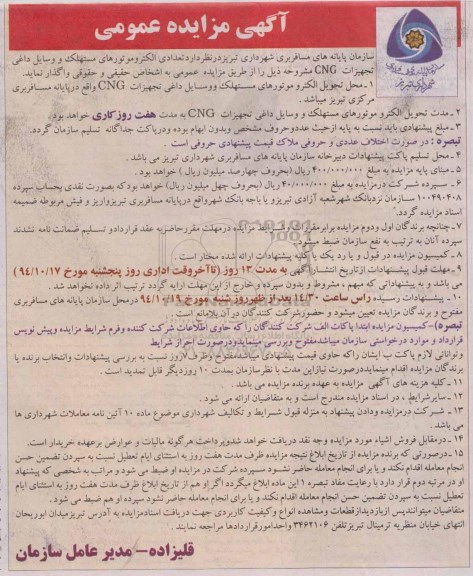 آگهی مزایده عمومی
سازمان پایانه های مسافربری شهرداری تبریز درنظردارد تعدادی الکتروموتورهای مستهلک و وسایل داغی
تجهیزات CNG مشروحه ذیل را از طریق مزایده عمومی به اشخاص حقیقی و حقوقی واگذار نماید.
۱ـ محل تحویل الکترو موتورهای مستهلک ووسایل داغی تجهیزات CNG واقع درپایانه مسافربری
مرکزی تبریز میباشد.
۲ـ مدت تحویل الکترو موتورهای مستهلک و وسایل داغی تجهیزات CNG به مدت هفت روزکاری خواهد بود.
۳ـ مبلغ پیشنهادی باید نسبت به پایه ازحیث عددوحروف مشخص وبدون ابهام بوده ودرپاکت جداگانه تسلیم سازمان گردد.
تبصره : در صورت اختلاف عددی و حروفی ملاک قیمت پیشنهادی حروفی است .
۴ـ محل تسلیم پاکت پیشنهادات دبیرخانه سازمان پایانه های مسافربری شهرداری تبریز می باشد .
۵ـ مبنای پایه مزایده به مبلغ ۴۰۰/۰۰۰/۰۰۰ ریال (بحروف چهارصد میلیون ریال ) خواهد بود .
۶ـ سپرده شرکت درمزایده به مبلغ ۴۰/۰۰۰/۰۰۰ ریال (بحروف چهل میلیون ریال) خواهد بودکه بصورت نقدی بحساب سپرده
۱۰۰۴۹۰۴۰۸ سازمان نزدبانک شهرشعبه آزادی تبریزو یا باجه بانک شهرواقع درپایانه مسافربری تبریزواریز و فیش مربوطه ضمیمه
اسناد مزایده گردد.
۷ـ چنانچه برندگان اول ودوم مزایده برابرمقررات وشرایط مزایده درمهلت مقررحاضربه عقد قراردادو تسلیم ضمانت نامه نشدند
سپرده آنان به ترتیب به نفع سازمان ضبط میشود.
۸ـ کمیسیون مزایده در قبول و یا رد یک یا کلیه پیشنهادات ارائه شده مختار است .
۹ـ مهلت قبول پیشنهادات ازتاریخ انتشارآگهی به مدت ۱۳ روز (تاآخروقت اداری روز پنجشنبه مورخ ۹۴/۱۰/۱۷)
می باشد و به پیشنهاداتی که مبهم ، مشروط و بدون سپرده و خارج از این مهلت ارایه گردد ترتیب اثر داده نخواهد شد.
۱۰ـ پیشنهادات رسیده راس ساعت ۱۴/۳۰ بعد از ظهرروز شنبه مورخ ۹۴/۱۰/۱۹ درمحل سازمان پایانه های مسافربری
مفتوح و برندگان مزایده تعیین میشود و حضورشرکت کنندگان در آن بلامانع است .
تبصره)- کمیسیون مزایده ابتدا پاکات الف شرکت کنندگان را که حاوی اطلاعات شرکت کننده وفرم شرایط مزایده وپیش نویس
قرارداد و موارد درخواستی سازمان میباشدمفتوح وبررسی مینمایدودرصورت احراز شرایط
وتوانائی لازم پاکت ب ایشان راکه حاوی قیمت پیشنهادی میباشدمفتوح وظرف ۷روز نسبت به بررسی پیشنهادات وانتخاب برنده یا
برندگان مزایده اقدام مینمایددرصورت نیازاین مدت با نظرسازمان بمدت ۱۰ روزدیگر قابل تمدید است .
۱۱ـ کلیه هزینه های آگهی مزایده به عهده برنده مزایده می باشد .
۱۲ـ سایرشرایط ، در اسناد مزایده مندرج است و به متقاضیان ارائه می شود .
۱۳ـ شرکت درمزایده ودادن پیشنهاد به منزله قبول شرایط و تکالیف شهرداری موضوع ماده ۱۰ آئین نامه معاملات شهرداری ها
می باشد .
۱۴ـ درمقابل فروش اشیاء مورد مزایده وجه نقد دریافت خواهد شدوپرداخت هرگونه مالیات و عوارض برعهده خریداراست.
۱۵ـ درصورتی که برنده مزایده از تاریخ ابلاغ نتیجه مزایده ظرف مدت هفت روز به استثنای ایام تعطیل نسبت به سپردن تضمین حسن
انجام معامله اقدام نکند و یا برای انجام معامله حاضر نشود سپرده شرکت در مزایده او ضبط می شود و مراتب به شخصی که پیشنهاد
او در مرتبه دوم قرار دارد با رعایت مفاد تبصره ۱ این ماده ابلاغ میگردد اگر او هم از تاریخ ابلاغ ظرف مدت هفت روز به استثنای ایام
تعطیل نسبت به سپردن تضمین حسن انجام معامله اقدام نکند و یا برای انجام معامله حاضر نشود سپرده او هم ضبط می شود .
متقاضیان میتوانندپس ازبازدیدازقطعات ومشاهده انواع وکیفیت کاربردی جهت دریافت اسنادمزایده به آدرس تبریزمیدان ابوریحان
انتهای خیابان منظریه ترمینال تبریزتلفن ۳۴۶۲۱۰۶ واحدامورقراردادها مراجعه نمایند .
قلیزاده- مدیر عامل سازمان